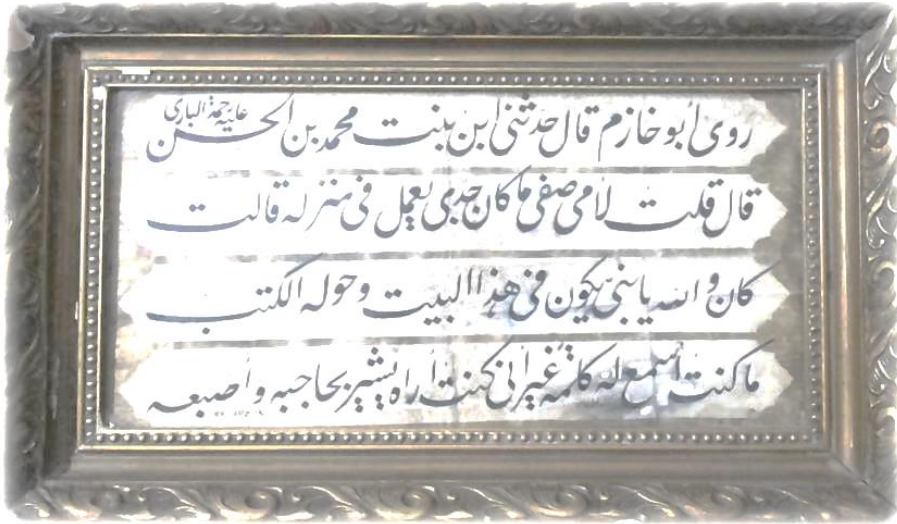 روى أبو خازم قال حدثني ابن بنت محمد بن الحسن عليه رحمة الباري
قال قلت لامي صفي ما كان جدي يعمل في منزله قالت
كان والله يا بني يكون في هذا البيت وحوله الكتب
ما كنت أسمع له كلمة غير أني كنت أراه يشير بحاجبه وأصبعه